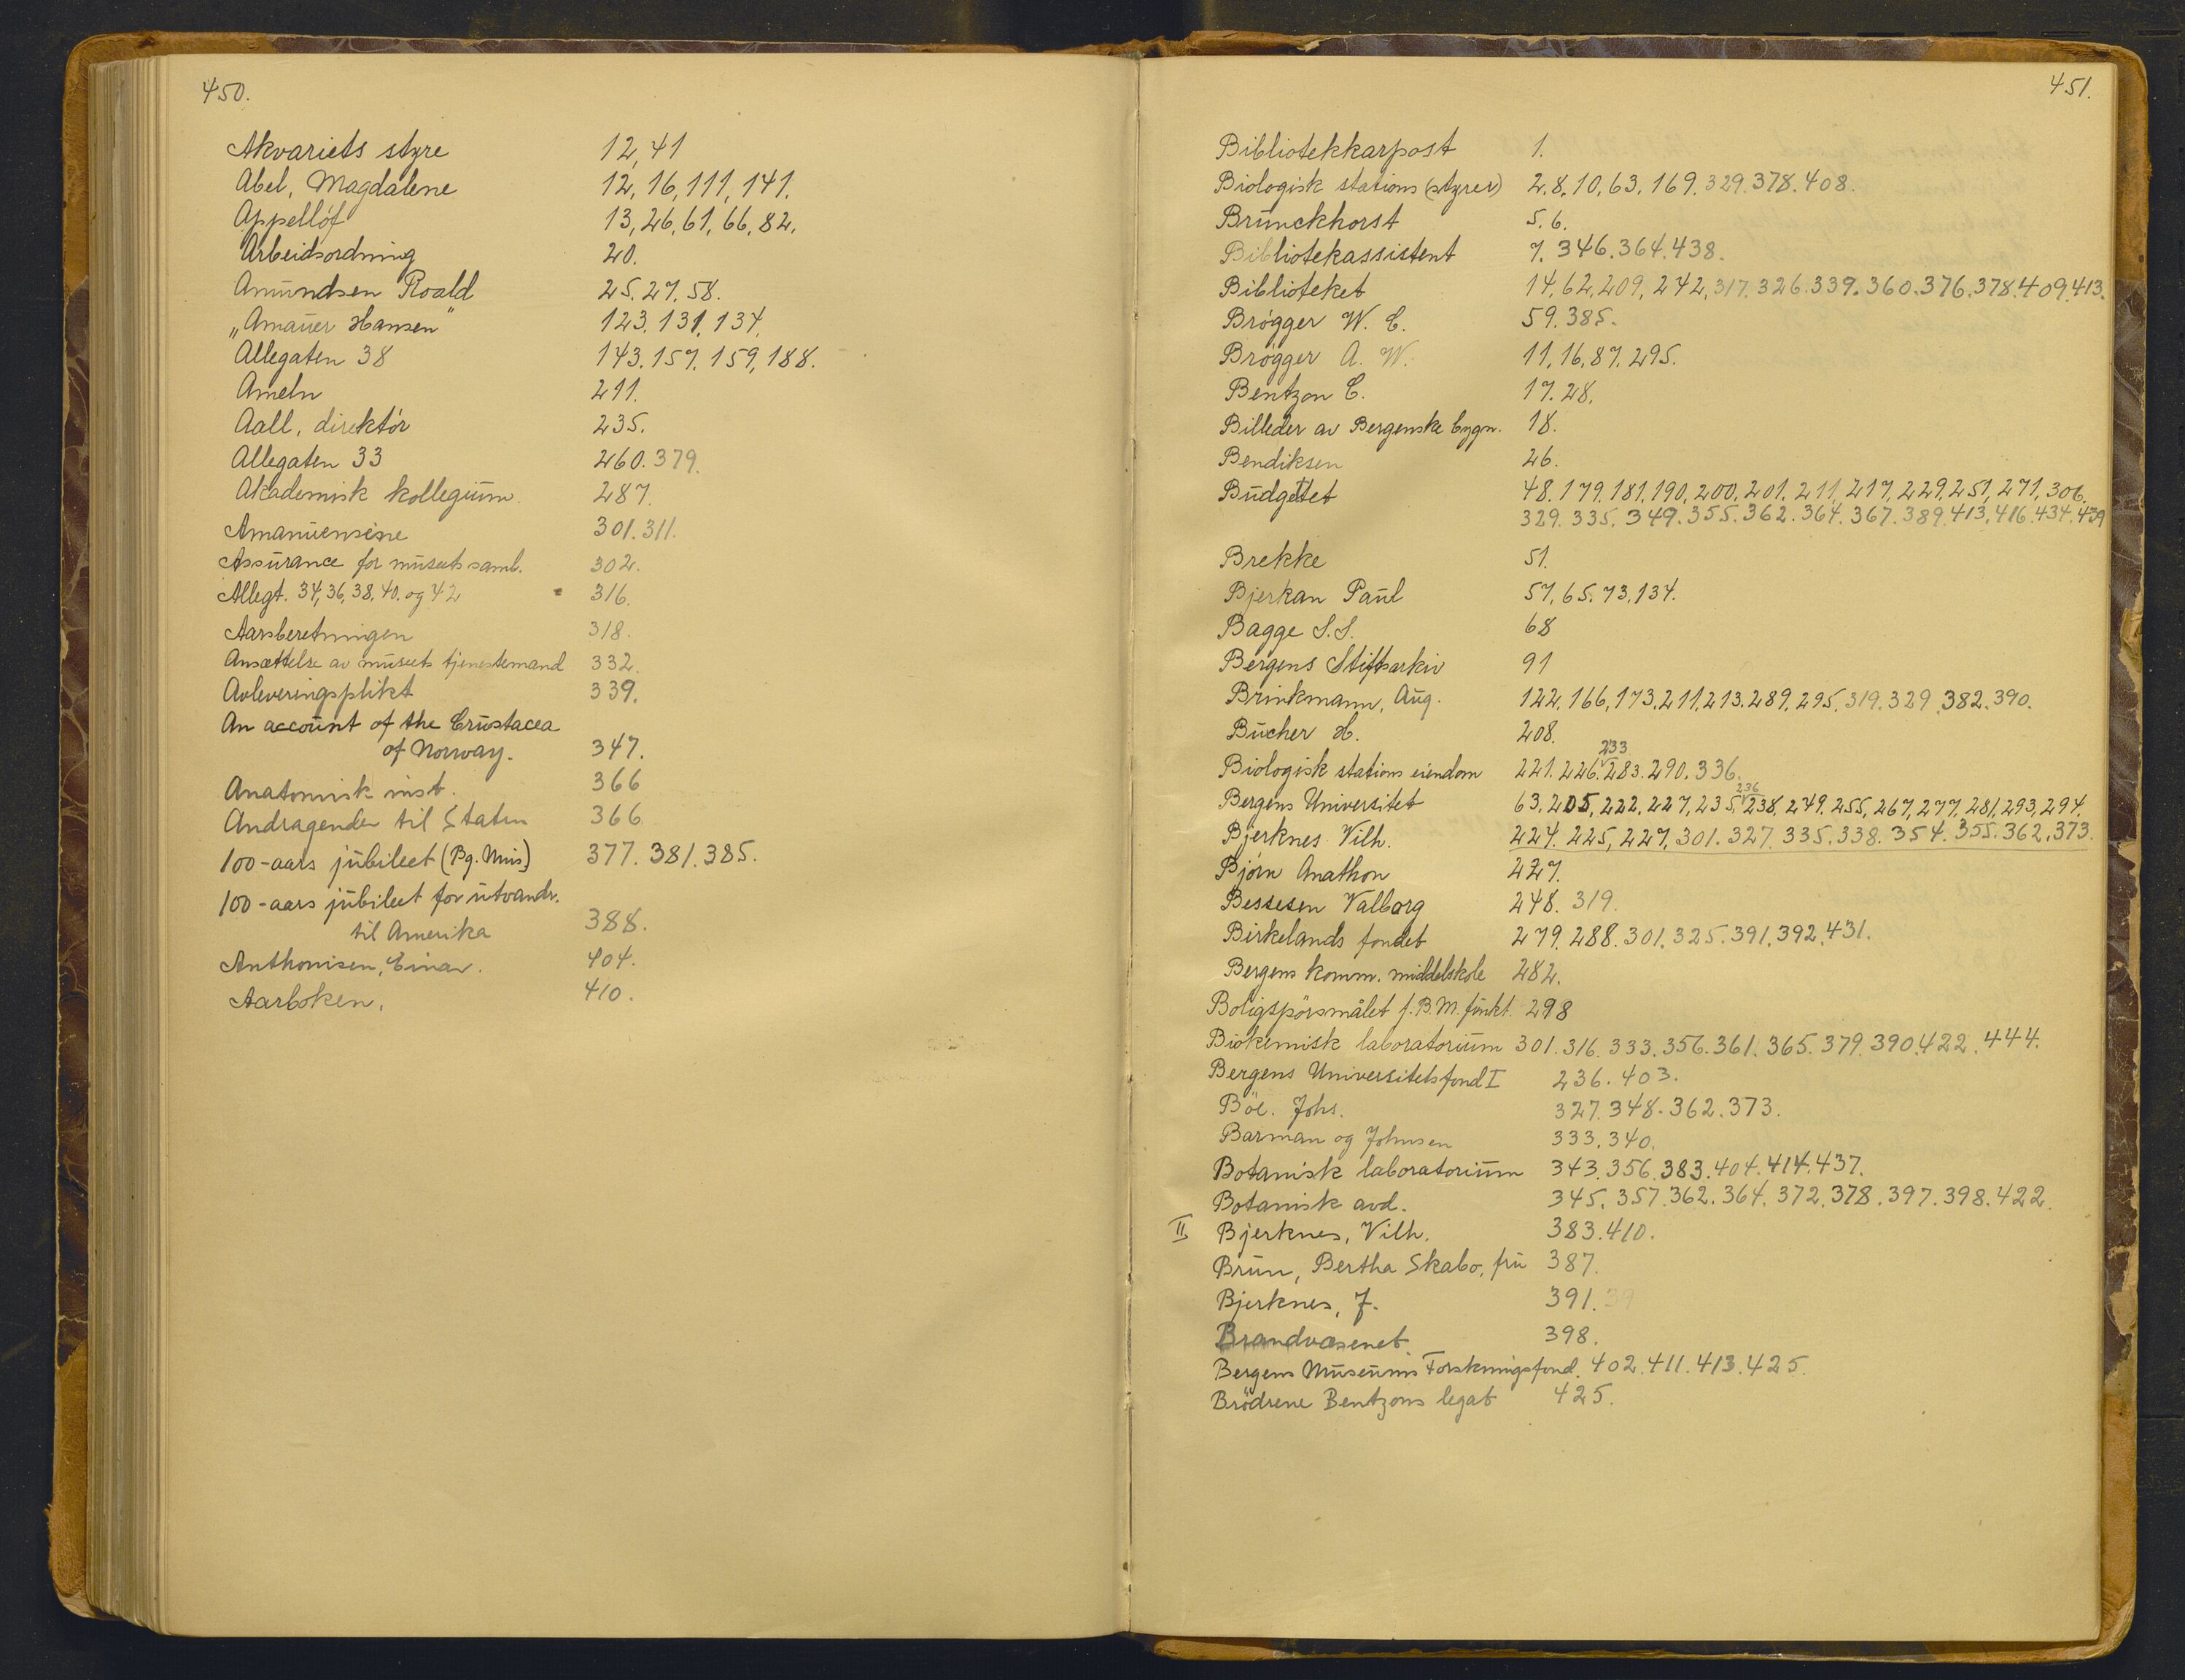 450.
Akvariets styre 12, 41
Abel, Magdalene 12, 16, 111, 141.
Appellöf 13, 26, 61, 66, 82.
Arbeidsordning 20.
Amundsen Roald 25. 27. 58.
„Amauer Hansen" 123. 131. 134.
Allegaten 38 143. 157. 159, 188.
Ameln 211.
Aall, direktör 235.
Allegaten 33 260. 379.
Akademisk kollegium. 287.
Amanuensisne 301. 311.
Assurance for museets saml. 302.
Allegt. 34, 36, 38, 40. og 42 316.
Aarsberetningen 318.
Ansættelse av museets tjenestemænd 332.
Avleveringsplikt 339.
An account of the Crustacea
of Norway. 347.
Anatomisk inst. 366
Andragender til Staten 366.
100-aars jubileet (Bg. Mus.) 377. 381. 385.
100-aars jubileet for utvandr.
til Amerika 388.
Anthonisen, Einar. 404.
Aarboken. 410.
451.
Bibliotekkarpost 1.
Biologisk stations (styrer) 2, 8, 10, 63, 169. 329. 378. 408.
Brunckhorst 5. 6.
Bibliotekassistent 7. 346. 364. 438.
Biblioteket 14, 62, 209, 242, 317. 326. 339. 360. 376. 378. 409. 413.
Brögger W. C. 59. 385.
Brögger A. W. 11, 16, 87. 295.
Bentzon C. 17. 28.
Billeder av Bergenske bygn. 18.
Bendiksen 26.
Budgettet 48. 179. 181. 190. 200. 201. 211, 217, 229, 251, 271, 306.
329. 335. 349. 355. 362. 364. 367. 389. 413, 416. 434. 439
Brekke 51.
Bjerkan Paul 57, 65. 73. 134.
Bagge S. S. 68
Bergens Stiftsarkiv 91
Brinkmann, Aug. 122, 166, 173, 211, 213. 289, 295, 319. 329. 382. 390.
Bucher H. 208.
233
Biologisk stations eiendom 221. 226. 283. 290. 336.
236
Bergens Universitet 63, 205, 222, 227, 235, 238, 249. 255, 267, 277, 281, 293, 294.
Bjerknes Vilh. 224. 225, 227, 301. 327. 335. 338. 354. 355. 362. 373.
Björn Anathon 227.
Bessesen Valborg 248. 319.
Birkelands fondet 279. 288. 301. 325. 391. 392. 431.
Bergens komm. middelskole 282.
Boligspörsmålet f. B. M. funkt. 298
Biokemisk laboratorium 301. 316. 333. 356. 361. 365. 379. 390. 422. 444.
Bergens Universitetsfond I 236. 403.
Böe. Johs. 327. 348. 362. 373.
Barman og Johnsen 333. 340.
Botanisk laboratorium 343. 356. 383. 404. 414. 437.
Botanisk avd. 345. 357. 362. 364. 372. 378. 397. 398. 422.
II Bjerknes, Vilh. 383. 410.
Brun, Bertha Skabo, fru 387.
Bjerknes, J. 391. 39
Brandvæsenet 398.
Bergens Museums Forskningsfond. 402. 411. 413. 425.
Brödrene Bentzons legat 425.